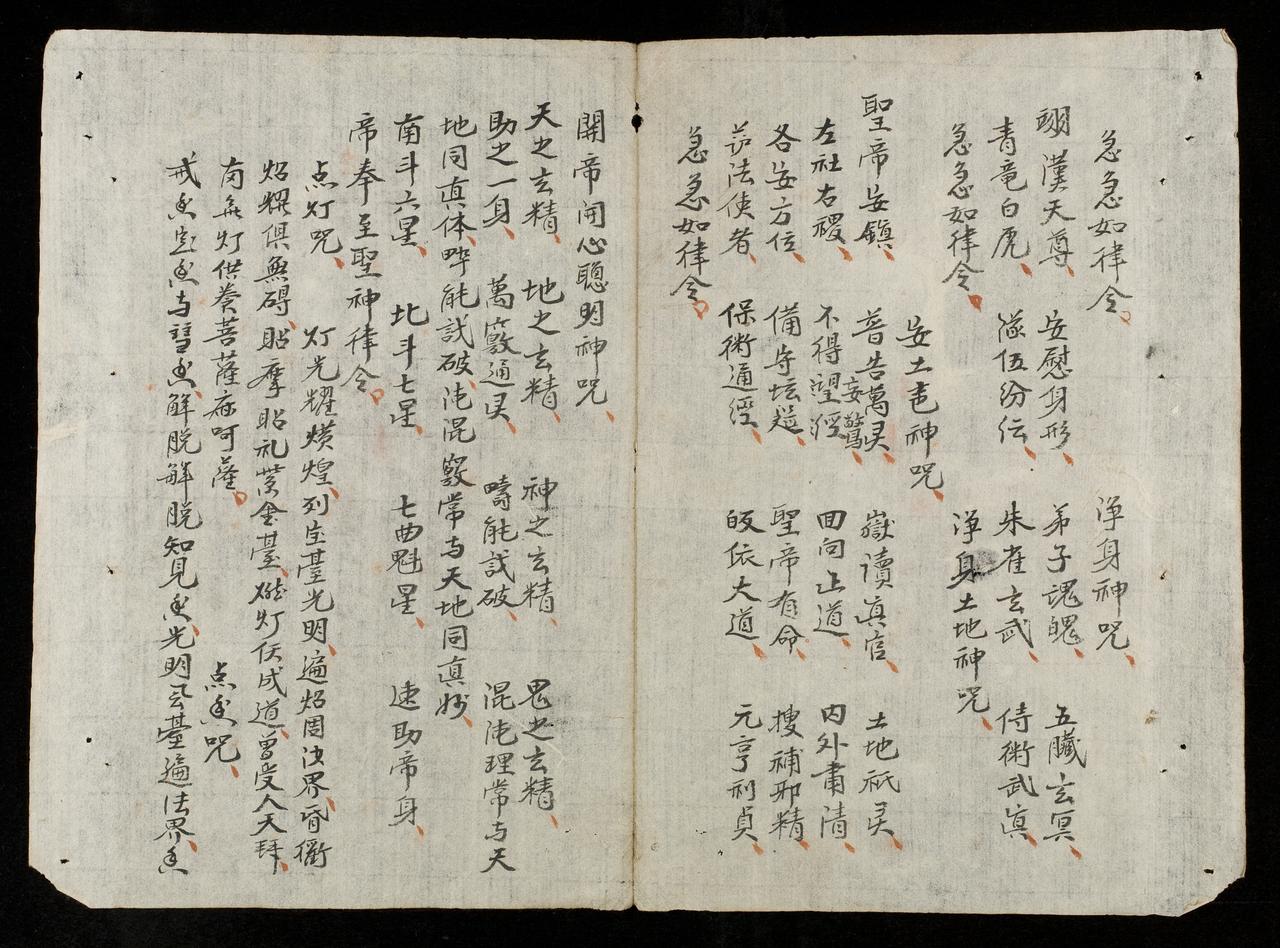 急急如律令 淨身神咒
翊漢天尊 安慰身形 弟子魂魄 五臟玄冥
青竜白虎 隊伍纷纭 朱雀玄武 侍術武真
急急如律令 淨身土地神咒
安土地神咒
聖帝安鎮 普告萬灵 嶽讀真官 土地祇灵
左社右稷 不得望 妄驚 回向正道 内外肅清
各安方位 備守坛 聖帝有命 搜補邪精
法使者 保術通經 皈依大道 元亨利貞
急急如律令
開帝開心聰明神咒
天之玄精 地之玄精 神之玄精 鬼之玄精
助之一身 萬竅通灵 疇能試破 混沌理常与天
地同真体 能試破 沌混竅常与天地同真妙
南斗六星 北斗七星 七曲魁星 速助帝身
帝奉至聖神律令
点灯咒 灯光耀熿煌 列宝臺光明 遍炤周法界昏衢
炤耀俱無碍 貼摩貼礼紫金臺 燃灯仸成道 曾受人天拜
南無灯供养菩薩麻呵薩 点香咒
戒香定香与慧香 解脱解脱知見香 光明云臺遍法界香